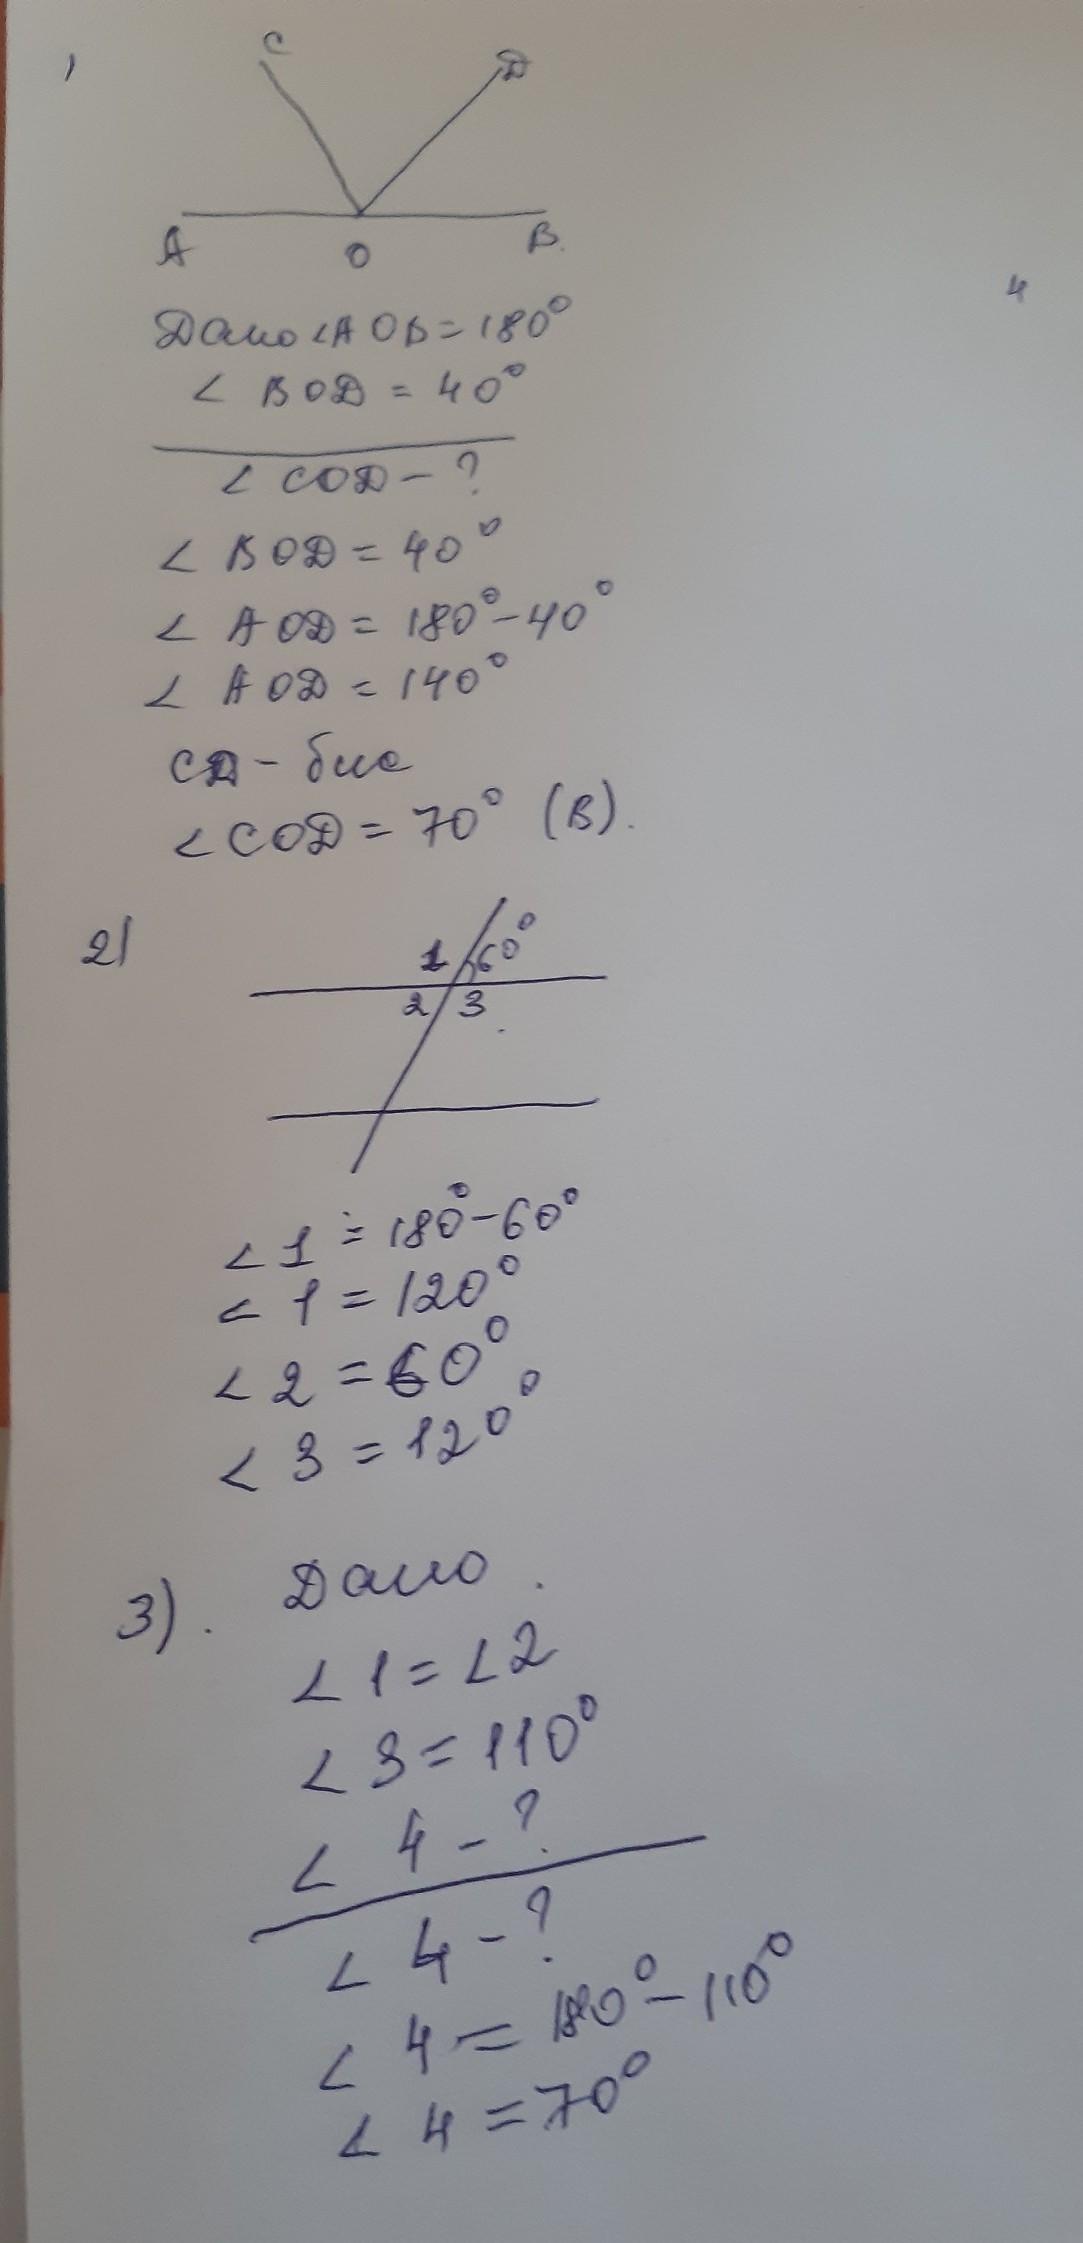 1
C
D
A
O
B.
4
Дано <AOB=180°
< BOD = 40°
< COD - ?
< BOD = 40°
< AOD = 180°-40°
< AOD = 140°
CD - бис
<COD = 70° (В).
2)
1 60°
2 3
<1 = 180°-60°
< 1 = 120°
< 2 = 60°
< 3 = 120°
3). Дано.
< 1 = <2
< 3 = 110°
< 4 - ?
< 4 - ?
< 4 = 180° - 110°
< 4 = 70°